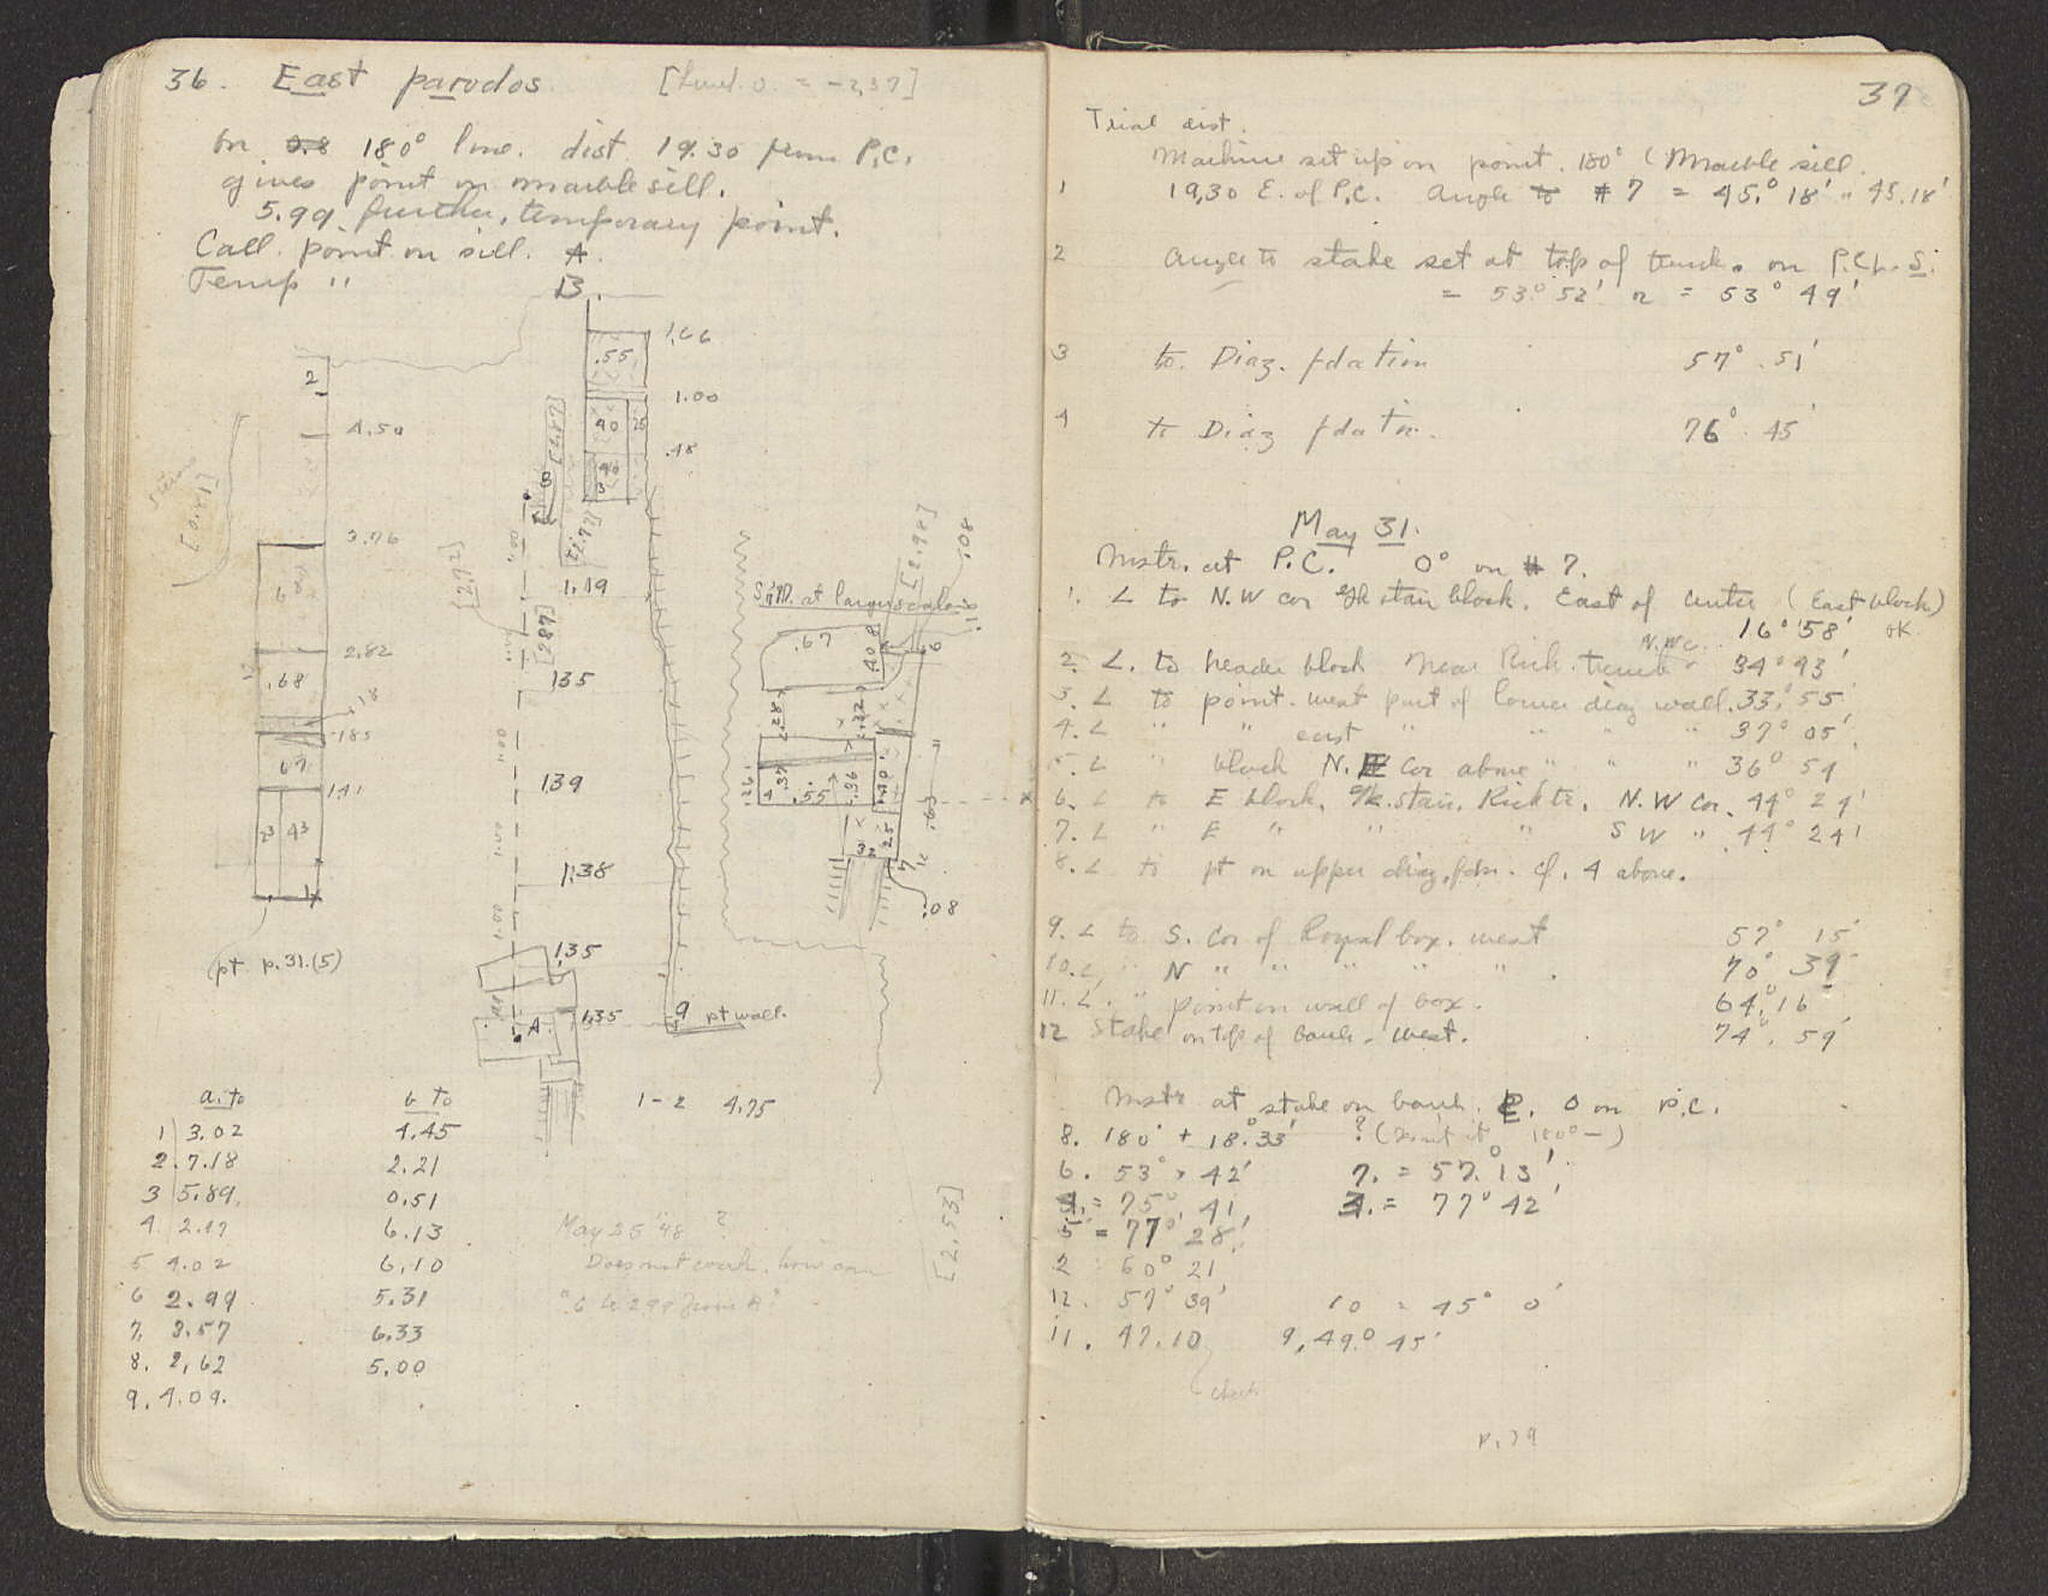 36. East parodos [Level. 0. = -2,37]
on 0.8 180° line. dist. 19.30 from P.C.
gives point on marble sill.
5.99 further, temporary point.
Call. point on sill. A.
Temp " B.
1.66
.55
2
1.00
4.50
40 25
.48
[2.87]
[0.41]
40
B
3
3.76
[2.72]
[2.98]
.08
1.19
Sill. at larger scale
[287]
.67
2.82
135
.68
.18
.28
.22
.185
.67
139
.37
.55
.36
1.41
.63
23 43
25
32
1.38
.08
135
pt p.31.(5)
A
1.35
9 pt wall.
a. to b to
1-2 4.75
1 3.02 4.45
2. 7.18 2.21
3 5.89. 0.51
4. 2.17 6.13
5 4.02 6.10
6 2.99 5.31
7. 3.57 6.33
8. 2,62 5.00
9. 4.09.
May 25 '48 ?
Does not work. how can
"6 be 299 from A"?
[2,53]
37
Trial dist.
Machine set up on point. 180° (Marble sill.
1 19,30 E. of P.C. Angle to # 7 = 45.° 18' " 45.18'
2 angle to stake set at top of trench. on P.C.
= 53° 52' = 53° 49'
3 to. Diaz. fdation 57° . 51'
4 to Diaz fdation. 76° . 45'
May 31.
Instr. at P.C. 0° on # 7.
1. ∠ to N.W cor Gk stair block. East of center (East block)
16° 58' OK.
N.W c.
2. ∠. to header block near Rich. trench 34° 43'
3. ∠ to point. west part of lower diaz wall. 33° 55'
4. ∠ " " east " " " 37° 05'
5. ∠ " block N.E cor above " " " 36° 54
6. ∠ to E block, Gk. stair. Rich tr. N.W cor. 44° 24'
7. ∠ " E " " " S W " 44° 24'
8. ∠ to pt on upper diaz. fdn. cf. 4 above.
9. ∠ to S. cor of Royal box. west 57° 15'
10. ∠ " N " " " " " . 70° 39'
11. ∠. " point on wall of box. 64° 16
12 Stake on top of bank. west. 74° . 59'
Instr at stake on bank. E. 0 on P.C.
8. 180° + 18° 33' ? (Isn't it 180° - )
6. 53° 42' 7. = 57° 13'
4. = 75° 41 3. = 77° 42'
5 = 77° 28'
2 60° 21
12. 57° 39' 10 = 45° 0'
11. 47.10 9, 49° 45'
check
p. 39